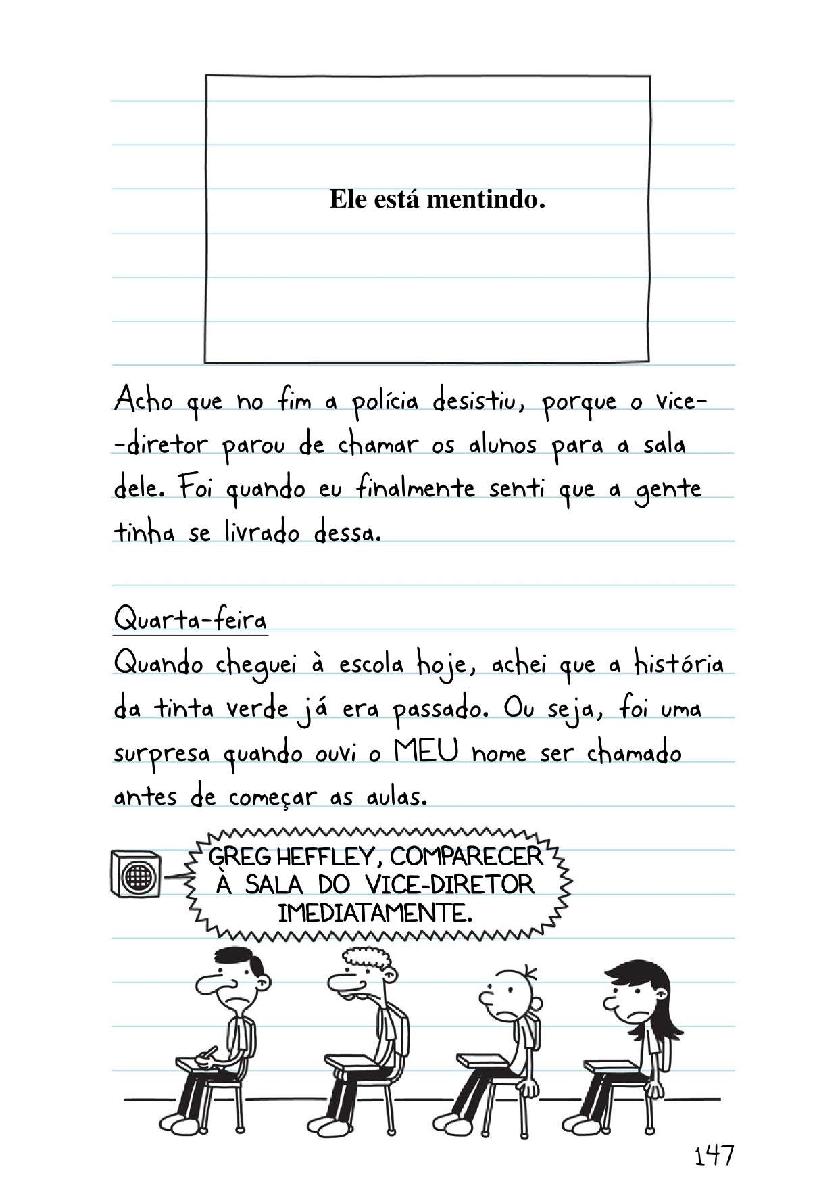 Ele está mentindo.
Acho que no fim a polícia desistiu, porque o vice-
-diretor parou de chamar os alunos para a sala
dele. Foi quando eu finalmente senti que a gente
tinha se livrado dessa.
Quarta-feira
Quando cheguei à escola hoje, achei que a história
da tinta verde já era passado. Ou seja, foi uma
surpresa quando ouvi o MEU nome ser chamado
antes de começar as aulas.
GREG HEFFLEY, COMPARECER
À SALA DO VICE-DIRETOR
IMEDIATAMENTE.
147